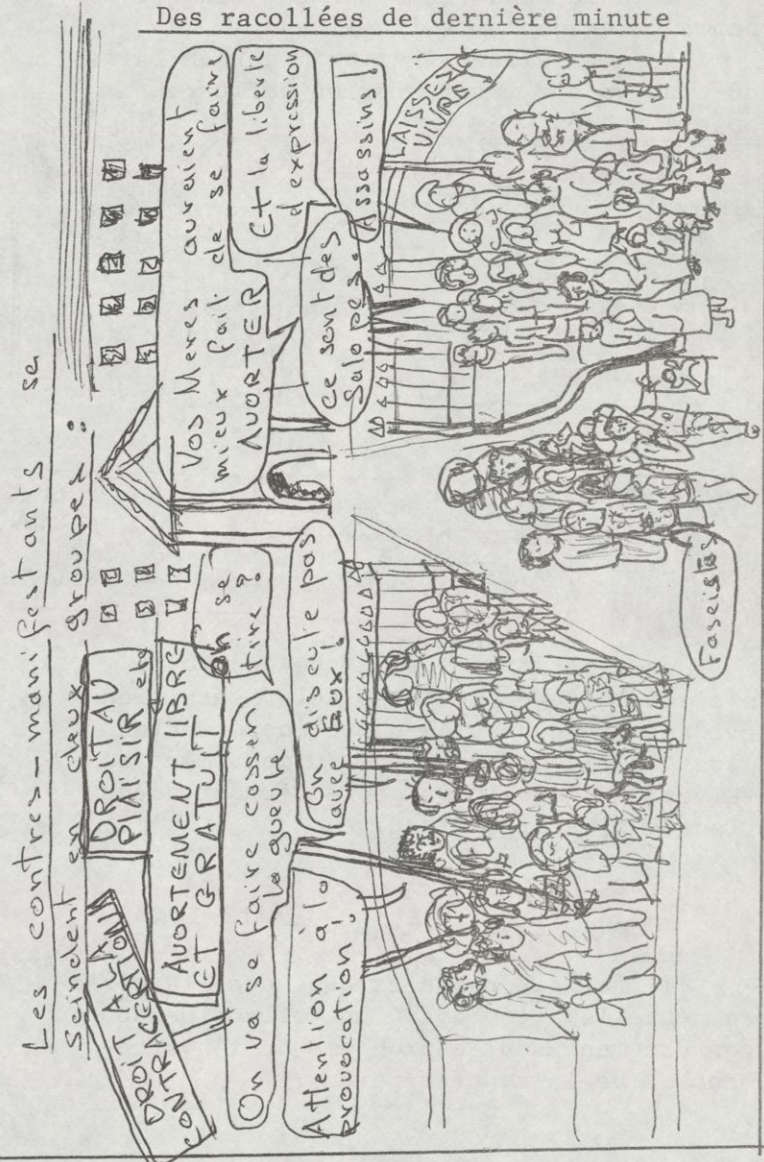 Des racollées de dernière minute
Les contres-manifestants se
Scindent en deux groupes :
DROIT A LA
CONTRACEPTION
DROIT AU
PLAISIR etc
AVORTEMENT LIBRE
ET GRATUIT
On se
tire ?
On va se faire casser
la gueule
On discute pas
avec Eux !
Attention à la
provocation !
Vos Meres auraient
mieux fait de se faire
AVORTER
Et la liberte
d'expression
Ce sont des
Salopes !
Assassins !
LAISSEZ
VIVRE
Fascistes